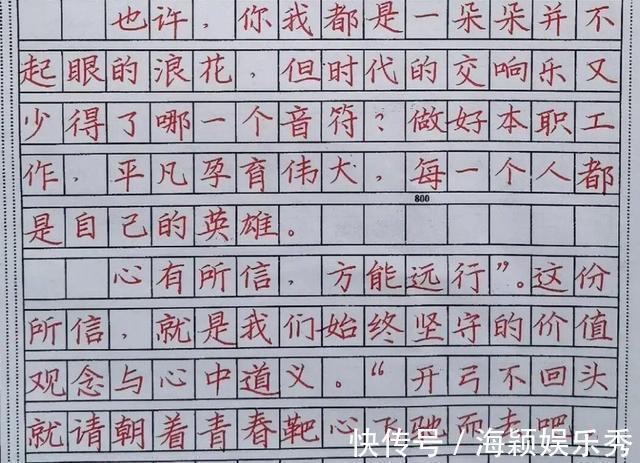 也许，你我都是一朵朵并不
起眼的浪花，但时代的交响乐又
少得了哪一个音符？做好本职工
作，平凡孕育伟大，每一个人都
800
是自己的英雄。
心有所信，方能远行”。这份
所信，就是我们始终坚守的价值
观念与心中道义。“开弓不回头
就请朝着青春靶心飞驰而去吧
快传号／海颖娱乐秀